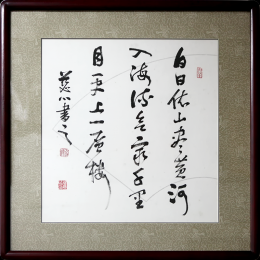 白日依山尽黄河
入海流欲穷千里
目更上一层楼
慈心书之